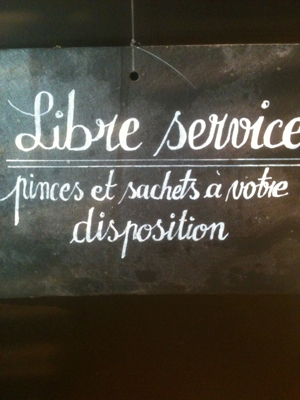 Libre service
pinces et sachets à votre
disposition